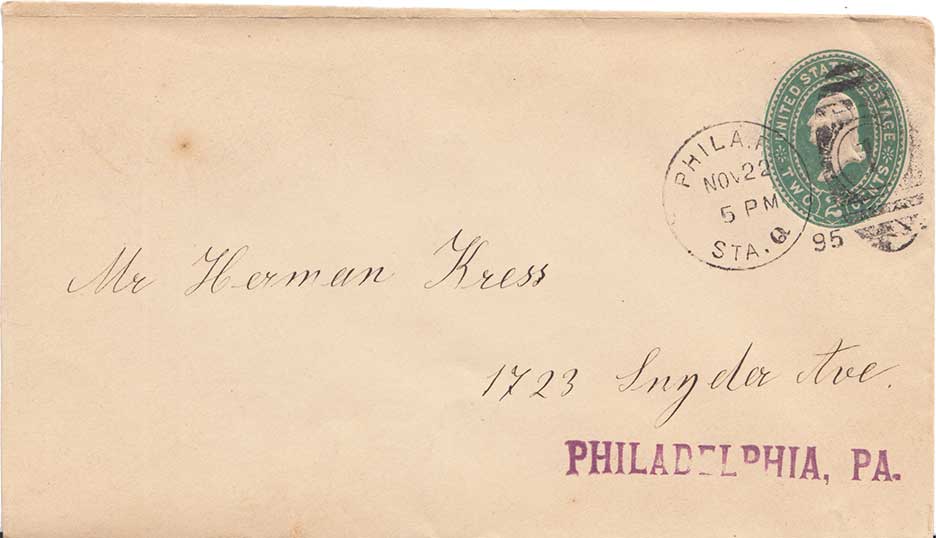 UNITED STATES POSTAGE
TWO 2 CENTS
PHILA. P
NOV 22
5 PM
STA. Q
95
Mr Herman Kress
1723 Snyder Ave.
PHILADELPHIA, PA.